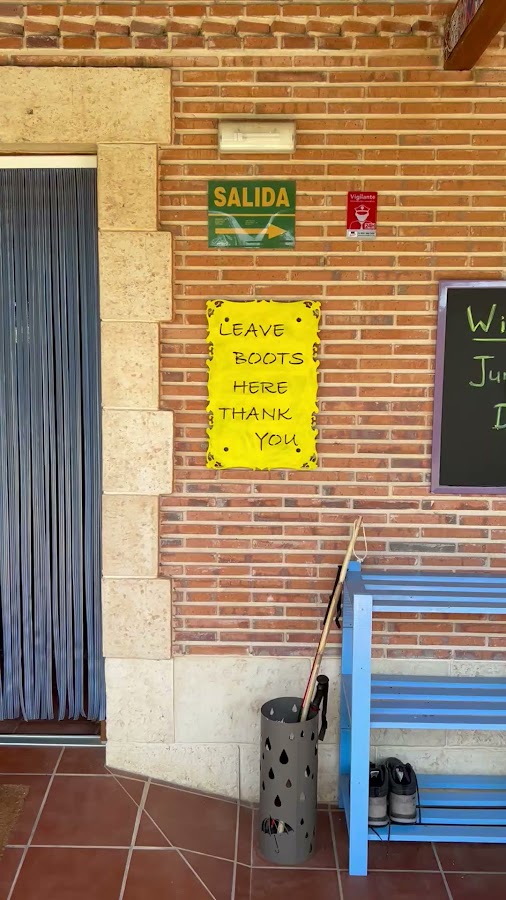 SALIDA
Vigilante
LEAVE
BOOTS
HERE
THANK
YOU
Wi
Jun
D